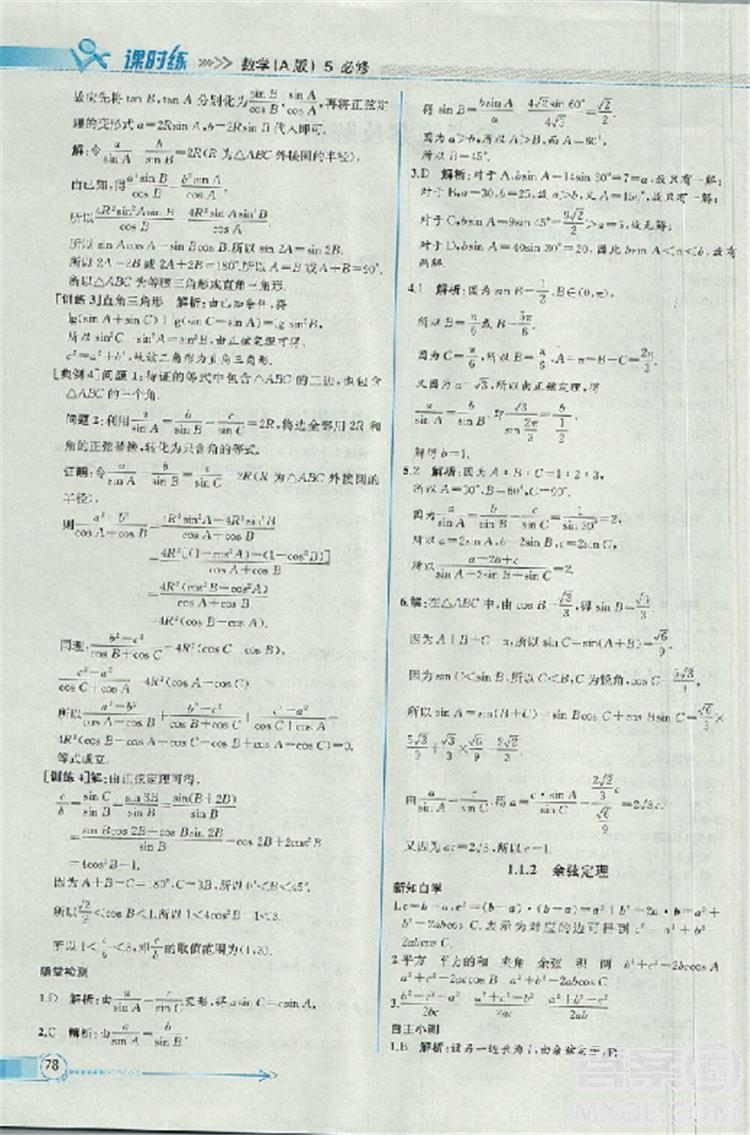 课时练 数学(A版) 5 必修
最应先将 tan B, tan A 分别化为 sin B/cos B, sin A/cos A, 再将正弦定
理的变形式 a=2Rsin A, b=2Rsin B 代入即可.
解:令 a/sin A = b/sin B = 2R(R 为△ABC外接圆的半径),
由已知,得 a²sin B/cos B = b²sin A/cos A
所以 4R²sin²Asin B/cos B = 4R²sin Asin²B/cos A
所以 sin Acos A=sin Bcos B, 所以 sin 2A=sin 2B.
所以 2A=2B 或 2A+2B=180°,所以 A=B 或 A+B=90°.
所以△ABC 为等腰三角形或直角三角形.
[训练3]直角三角形 解析:由已知条件得
lg(sin A+sin C)+lg(sin C-sin A)=
a²+b²=c²,故该三角形为直角三角形.
[典例4]问题1:待证的等式中包含△ABC 的三边,也包含
△ABC 的三个角.
问题2:利用 a/sin A = b/sin B = c/sin C = 2R,将边全部用 R 和
角的正弦替换,转化为只含角的等式.
证明:令 a/sin A = b/sin B = c/sin C = 2R(R 为△ABC外接圆的
半径),
则 (a²-b²)/(cos A+cos B) = (4R²sin²A-4R²sin²B)/(cos A+cos B)
= 4R²[(1-cos²A)-(1-cos²B)]/(cos A+cos B)
= 4R²(cos²B-cos²A)/(cos A+cos B)
=4R²(cos B-cos A)
同理: (b²-c²)/(cos B+cos C) =4R²(cos C-cos B)
(c²-a²)/(cos C+cos A) =4R²(cos A-cos C)
所以 (a²-b²)/(cos A+cos B) + (b²-c²)/(cos B+cos C) + (c²-a²)/(cos C+cos A) =
4R²(cos B-cos A+cos C-cos B+cos A-cos C)=0,
等式成立.
[训练4]解:由正弦定理可得,
c/b = sin C/sin B = sin 3B/sin B = sin(B+2B)/sin B
= (sin Bcos 2B+cos Bsin 2B)/sin B =cos 2B+2cos²B
=4cos²B-1
因为 A+B+C=180°,
所以1<c/b<3,即 c/b 的取值范围为(1,3).
随堂检测
1.D 解析:由 a/sin A = c/sin C 变形,得 asin C=csin A.
2.C 解析:由正弦定理 a/sin A = b/sin B
得 sin B=bsin A/a = 4√2sin 60°/4√3 = √2/2.
因为 a>b,所以 A>B,
所以 B=45°.
3.D 解析:对于 A, bsin A=14sin 30°=7=a,故只有一解;
对于 B, a=30,b=25,a>b,又 A=150°,故只有一解;
对于 C, bsin A=9sin 45°=9√2/2>a,故无解;
对于 D, bsin A=40sin 30°=20,因此 bsin A<a<b,故有
两解.
4.1 解析:因为 sin B=1/2,B∈(0,π),
所以 B=π/6或 B=5π/6.
因为 C=π/6,所以 B=π/6,所以 A=π-B-C=2π/3.
又因为 a=√3,由正弦定理得
a/sin A = b/sin B,即 √3/sin 2π/3 = b/(1/2).
解得 b=1.
5.2 解析:因为 A:B:C=1:2:3,
所以 A=30°,B=60°,C=90°.
因为 a/sin A = b/sin B = c/sin C = 1/sin 30° =2,
所以 a=2sin A,b=2sin B,c=2sin C,
所以 (a-2b+c)/(sin A-2sin B+sin C) =2.
6.解:在△ABC中,由 cos B=√3/3,得 sin B=√6/3.
因为 A+B+C=π,所以 sin C=sin(A+B)=√6/9
因为 sin C<sin B,所以 C<B,C 为锐角,所以 cos C=5√3/9
所以 sin A=sin(B+C)=sin Bcos C+cos Bsin C=√6/3×
5√3/9+√3/3×√6/9=2√2/3.
由 a/sin A = c/sin C,得 a=c·sin A/sin C = (2√2/3)c/(√6/9) =2√3c.
又因为 ac=2√3,所以 c=1.
1.1.2 余弦定理
新知自学
1.c=b-a,c²=(b-a)·(b-a)=a²+b²-2a·b=a²+
b²-2abcos C,表示为对应的边可得到 c²=a²+b²
-2abcos C.
2.平方 平方的和 夹角 余弦 积 b²+c²-2bccos A
a²+c²-2accos B a²+b²-2abcos C
3.(b²+c²-a²)/2bc (a²+c²-b²)/2ac (a²+b²-c²)/2ab
自主小测
1.B 解析:设另一边长为 l,由余弦定理,得
78
答案圈
MXQE.COM